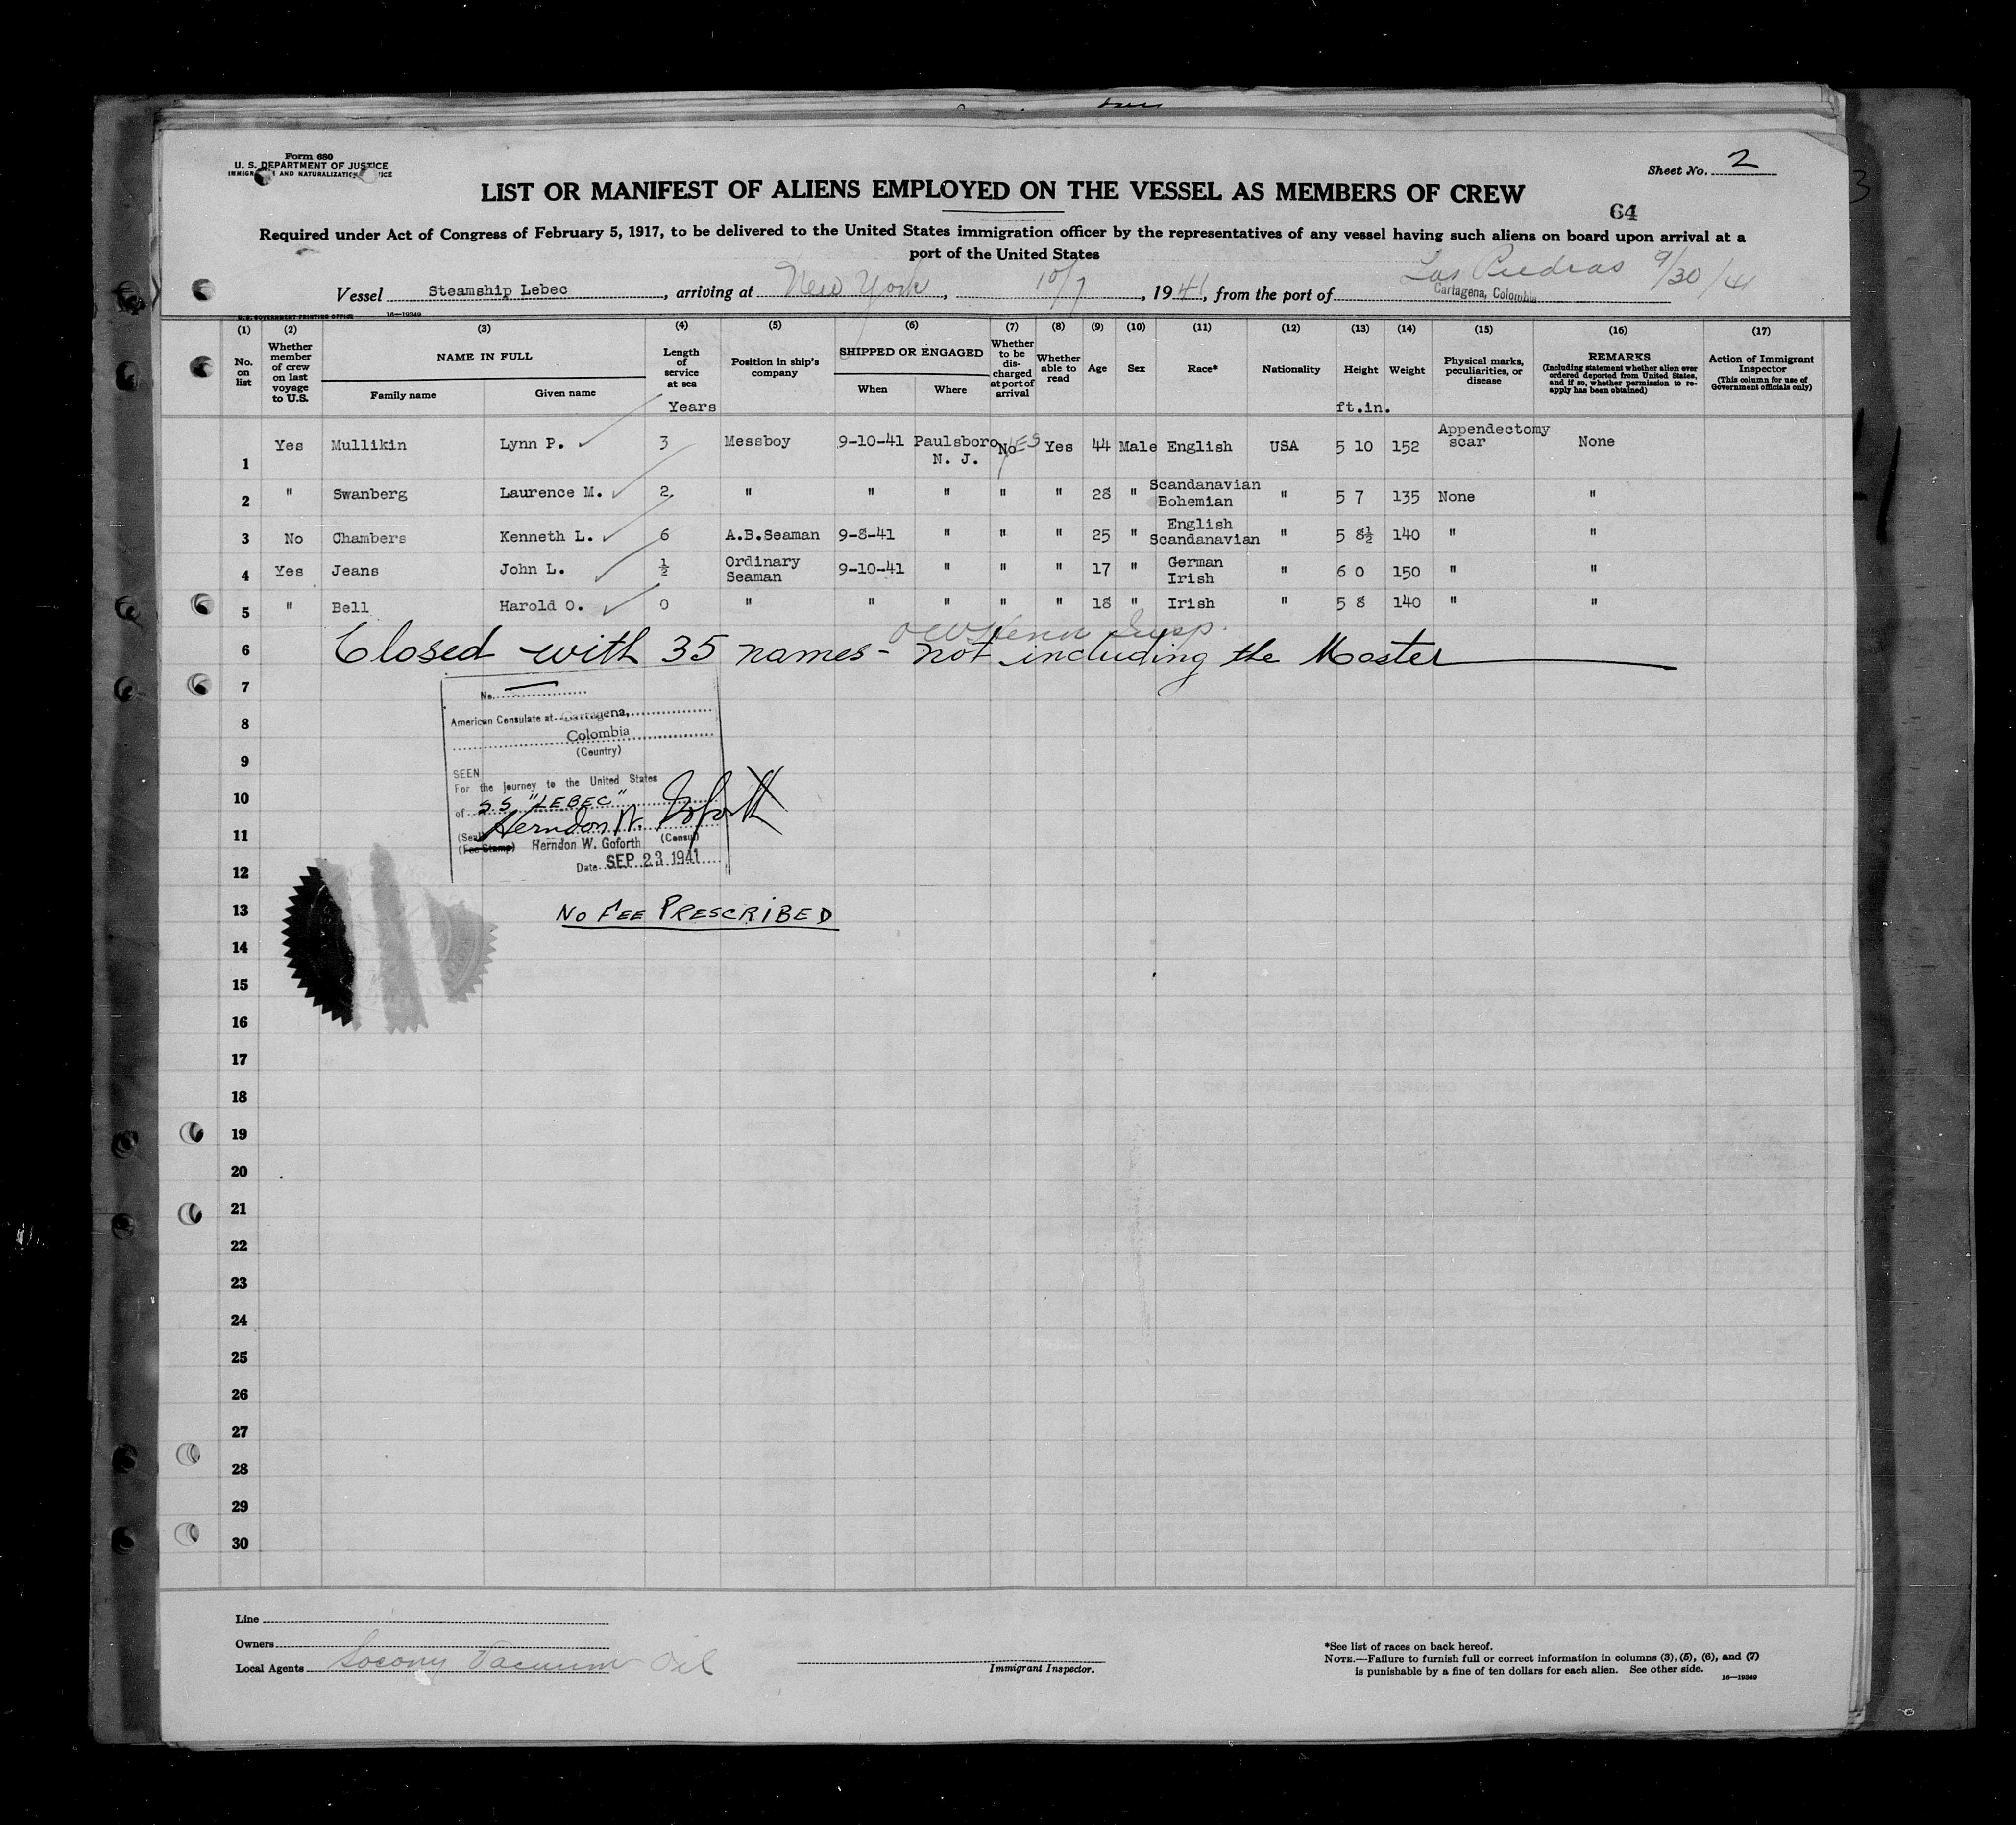 Form 680
U. S. DEPARTMENT OF JUSTICE
IMMIGRATION AND NATURALIZATION SERVICE
Sheet No. 2
LIST OR MANIFEST OF ALIENS EMPLOYED ON THE VESSEL AS MEMBERS OF CREW
64
Required under Act of Congress of February 5, 1917, to be delivered to the United States immigration officer by the representatives of any vessel having such aliens on board upon arrival at a
port of the United States
Vessel Steamship Lebec, arriving at New York, 10/7, 1941, from the port of Las Piedras 9/30/41
Cartagena, Colombia
U. S. GOVERNMENT PRINTING OFFICE 16—19349
(1) (2) (3) (4) (5) (6) (7) (8) (9) (10) (11) (12) (13) (14) (15) (16) (17)
No. on list
Whether member of crew on last voyage to U.S.
NAME IN FULL
Family name Given name
Length of service at sea
Years
Position in ship's company
SHIPPED OR ENGAGED
When Where
Whether to be discharged at port of arrival
Whether able to read
Age
Sex
Race*
Nationality
Height
ft.in.
Weight
Physical marks, peculiarities, or disease
REMARKS
(Including statement whether alien ever ordered deported from United States, and if so, whether permission to reapply has been obtained)
Action of Immigrant Inspector
(This column for use of Government officials only)
1 Yes Mullikin Lynn P. 3 Messboy 9-10-41 Paulsboro N. J. No Yes Yes 44 Male English USA 5 10 152 Appendectomy scar None
2 " Swanberg Laurence M. 2 " " " " " 28 " Scandanavian Bohemian " 5 7 135 None "
3 No Chambers Kenneth L. 6 A.B.Seaman 9-8-41 " " " 25 " English Scandanavian " 5 8½ 140 " "
4 Yes Jeans John L. ½ Ordinary Seaman 9-10-41 " " " 17 " German Irish " 6 0 150 " "
5 " Bell Harold O. 0 " " " " " 18 " Irish " 5 8 140 " "
6 Closed with 35 names - not including the Master
7
No.
8
American Consulate at Cartagena,
Colombia
(Country)
9
SEEN
For the journey to the United States
10
of S.S "LEBEC"
Herndon W. Goforth
11
(Seal) (Consul)
(Fee Stamp) Herndon W. Goforth
Date SEP 23 1941
12
13
NO FEE PRESCRIBED
14
15
16
17
18
19
20
21
22
23
24
25
26
27
28
29
30
Line
Owners
Local Agents Socony Vacuum Oil
Immigrant Inspector.
*See list of races on back hereof.
NOTE.—Failure to furnish full or correct information in columns (3), (5), (6), and (7)
is punishable by a fine of ten dollars for each alien. See other side.
16—19349